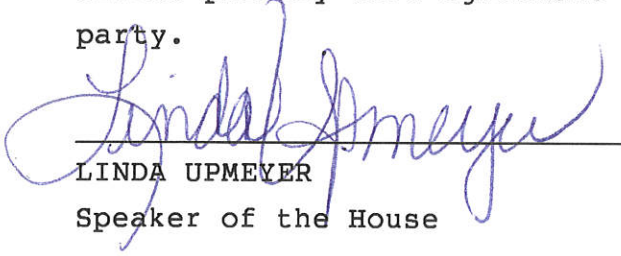 party.
Linda Upmeyer
LINDA UPMEYER
Speaker of the House